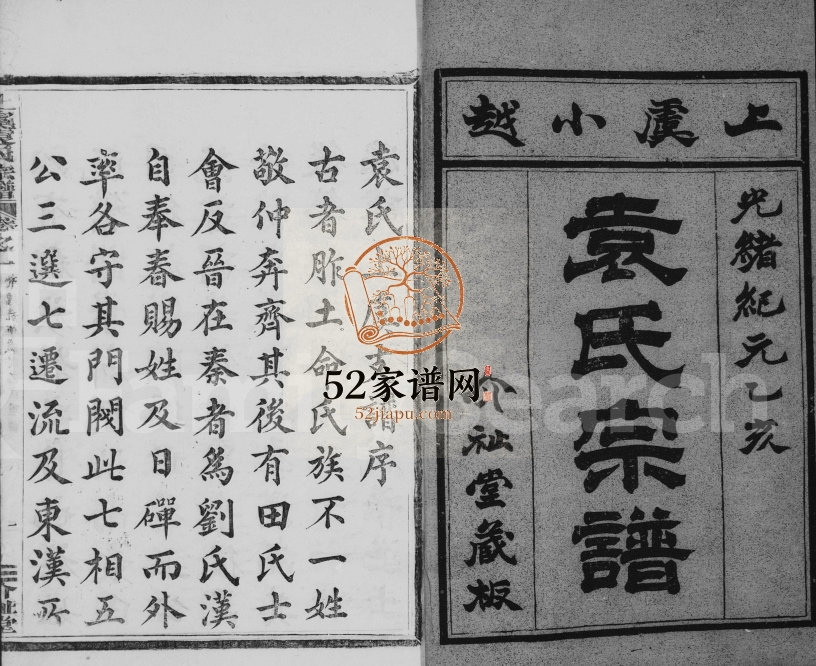 上虞小越
光緒紀元乙亥
袁氏宗譜
介祉堂藏板
袁氏上虞支譜序
古者胙土命氏族不一姓
敬仲奔齊其後有田氏士
會反晉在秦者爲劉氏漢
自奉春賜姓及日磾而外
率各守其門閥此七相五
公三選七遷流及東漢所
介祉堂
52家谱网
52jiapu.com
FamilySearch